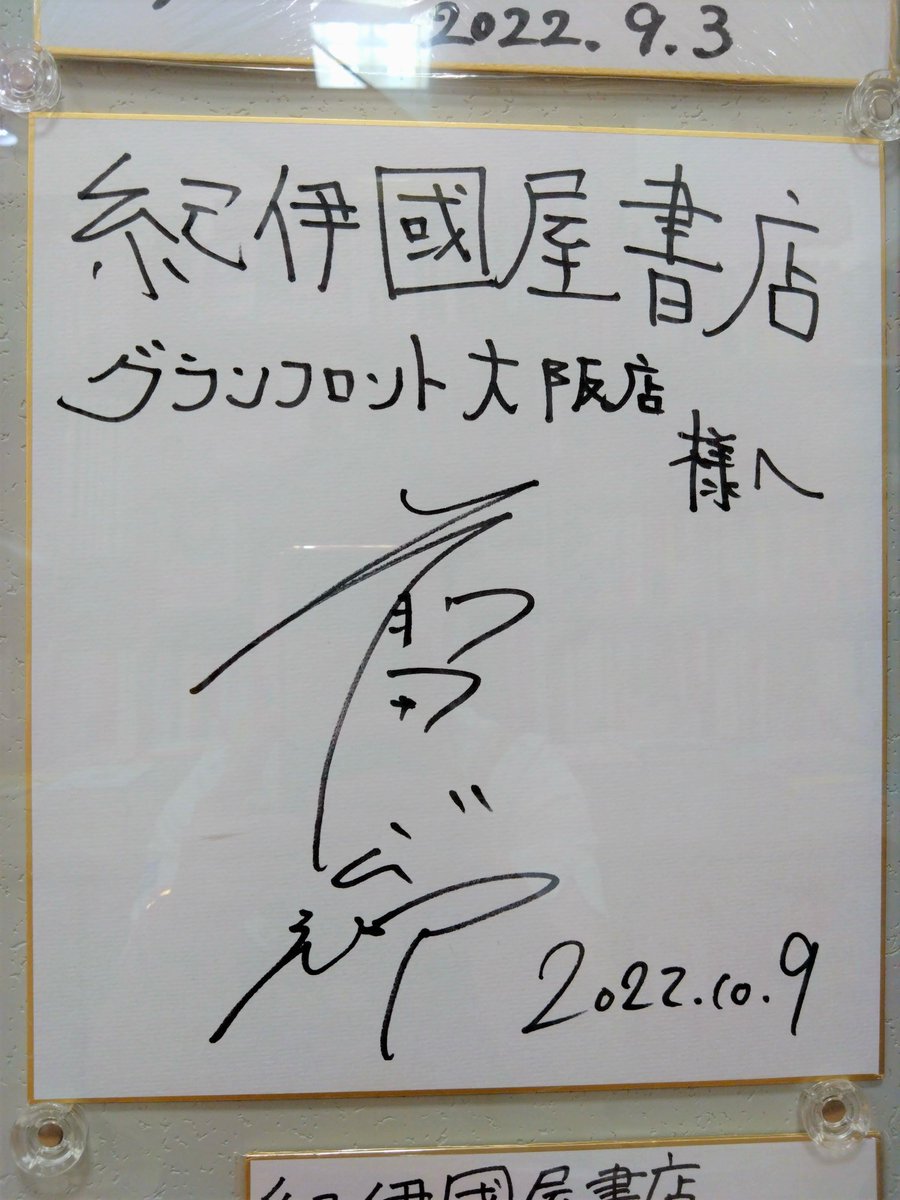 2022.9.3
紀伊國屋書店
グランフロント大阪店
様へ
2022.10.9
紀伊國屋書店